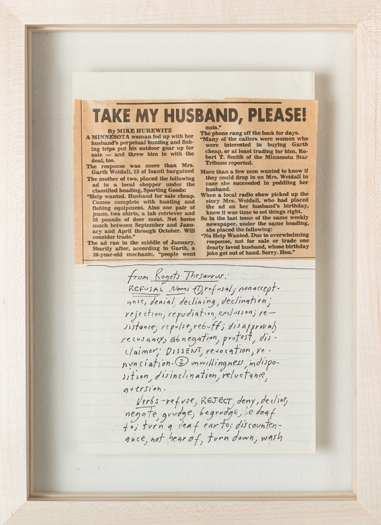 TAKE MY HUSBAND, PLEASE!
By MIKE HUREWITZ
A MINNESOTA woman fed up with her
husband's perpetual hunting and fish-
ing trips put his outdoor gear up for
sale — and threw him in with the
deal, too.
The response was more than Mrs.
Garth Weidall, 33 of Isanti bargained
The mother of two, placed the following
ad in a local shopper under the
classified heading, Sporting Goods:
"Help wanted. Husband for sale cheap.
Comes complete with hunting and
fishing equipment. Also one pair of
jeans, two shirts, a lab retriever and
25 pounds of deer meat. Not home
much between September and Janu-
ary and April through October. Will
consider trade."
The ad ran in the middle of January.
Shortly after, according to Garth, a
30-year-old mechanic, "people went
nuts."
The phone rang off the hook for days.
"Many of the callers were women who
were interested in buying Garth
cheap, or at least trading for him, Ro-
bert T. Smith of the Minnesota Star
Tribune reported.
More than a few men wanted to know if
they could drop in on Mrs. Weidall in
case she succeeded in peddling her
husband.
When a local radio show picked up the
story Mrs. Weidall, who had placed
the ad on her husband's birthday,
knew it was time to set things right.
So in the last issue of the same weekly
newspaper, under the same heading,
she placed the following:
"No Help Wanted. Due to overwhelming
response, not for sale or trade one
dearly loved husband, whose birthday
joke got out of hand. Sorry. Hon."
from Rogets Thesaurus:
REFUSAL Nouns ① refusal; nonaccept-
ance, denial, declining, declination;
rejection, repudiation, exclusion; re-
sistance, repulse, rebuff; disapproval,
recusancy, abnegation, protest, dis-
claimer; DISSENT, revocation, re-
nunciation. ② unwillingness, indispo-
sition, disinclination, reluctance,
aversion.
Verbs - refuse, REJECT, deny, decline,
negate, grudge, begrudge, be deaf
to; turn a deaf ear to; discounten-
ance, not hear of, turn down, wash